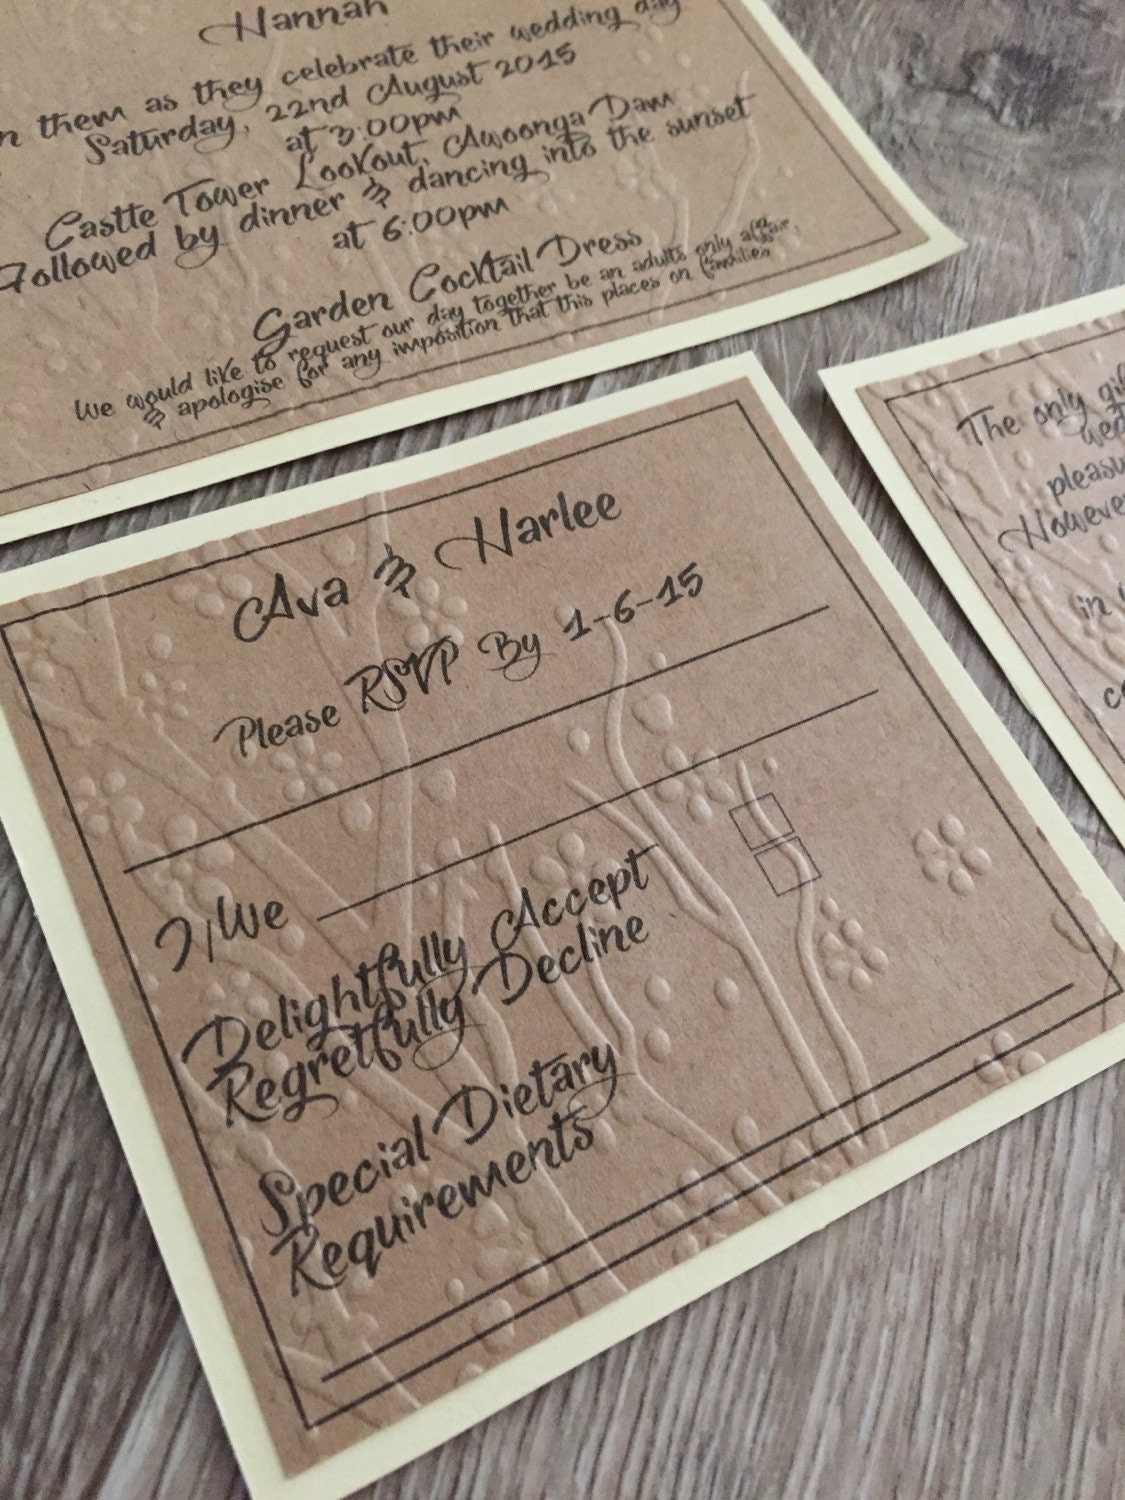 Hannah
them as they celebrate their wedding day
Saturday, 22nd August 2015
at 3:00pm
Castle Tower Lookout, Awoonga Dam
Followed by dinner & dancing into the sunset
at 6:00pm
Garden Cocktail Dress
We would like to request our day together be an adults only affair,
& apologise for any imposition that this places on families
Ava & Harlee
Please RSVP By 1-6-15
I/We
Delightfully Accept
Regretfully Decline
Special Dietary
Requirements
The only
pleasu
However
in